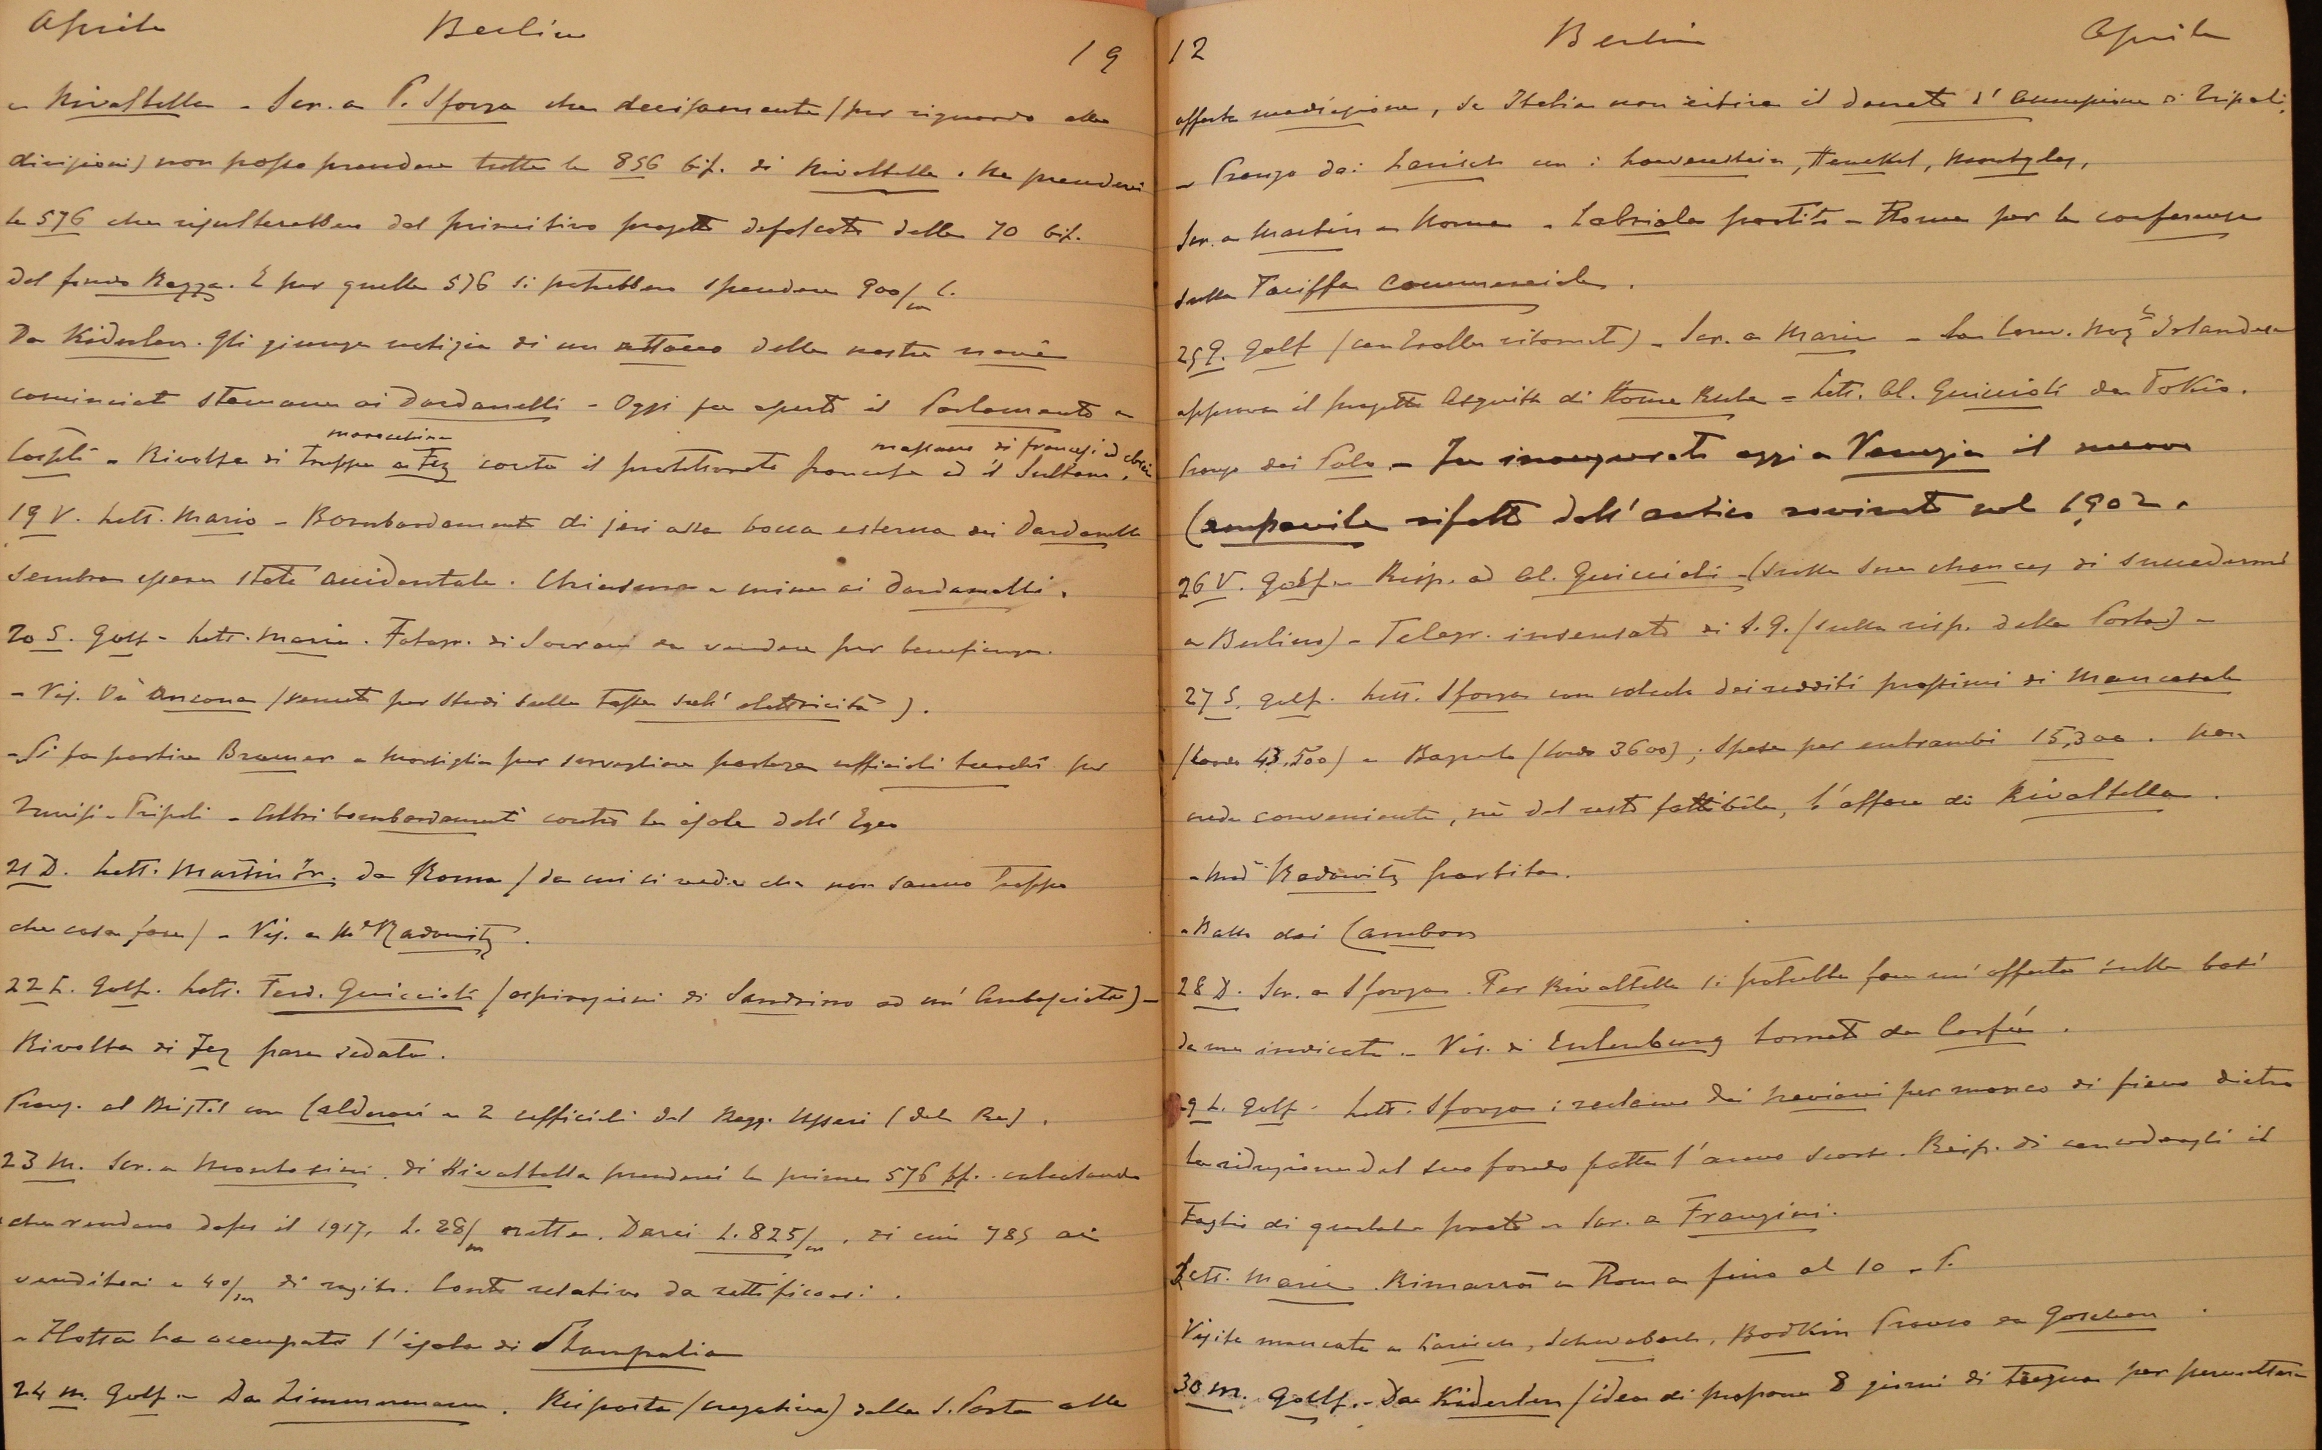 Aprile Berlin 19
a Rivaltella - Scr. a P. Sforza che decisamente (per riguardo alle
divisioni) non posso prendere tutte le 856 bif. di Rivaltella. Ne prenderei
le 576 che risulterebbero dal primitivo progetto defalcate delle 70 bif.
del fondo Razza. E per quelle 576 si potrebbero spendere 900/m L.
Da Kiderlen. Gli giunge notizia di un attacco delle nostre navi
cominciato stamane ai Dardanelli - Oggi fu aperto il Parlamento a
Cospli - Rivolta di truppe marocchine a Fez contro il protettorato francese ed il Sultano, massacro di francesi ed ebrei
19 V. Lett. Mario - Bombardamento di jeri alla bocca esterna dei Dardanelli
sembra essere stato accidentale. Chiusura a mine ai Dardanelli.
20 S. Golf - Lett. Maria. Fotogr. di Sovrani da vendere per beneficenza.
- Vis. D'Ancona (venuto per studi sulla tassa sull'elettricità).
- Si fa partire Bruner a Marsiglia per sorvegliare partenza ufficiali turchi per
Tunisi - Tripoli - Altri bombardamenti contro le isole dell'Egeo
21 D. Lett. Martin Fr. da Roma (da cui si vede che non sanno troppo
che cosa fare) - Vis. a Me Radowitz.
22 L. Golf. Lett. Ferd. Guiccioli (aspirazioni di Sandrino ad un'Ambasciata) -
Rivolta di Fez pare sedata.
Pranz. al Bristol con Calderari e 2 ufficiali del Regg. Usseri (del Re).
23 M. Scr. a Montasini. di Rivaltella prenderei le prime 576 bf. calcolando
che rendano dopo il 1917, L. 28/m nette. Darei L. 825/m, di cui 785 ai
venditori e 40/m di rogito. Conto relativo da rettificarsi.
- Flotta ha occupato l'isola di Stampalia
24 M. Golf - Da Zimmermann. Risposta (negativa) della S. Porta alla
12 Berlin Aprile
offerta mediazione, se Italia non ritira il decreto d'Annessione di Tripoli.
- Pranzo dai Larisch con: Lowenstein, Henckel, Montgelas,
Scr. a Martin a Roma - Labriola partito a Roma per la conferenza
sulla Tariffa Commerciale.
25 G. Golf (con Trolle ritornato) - Scr. a Maria - La Conv. Naz.le Irlandese
approva il progetto Asquith di Home Rule - Lett. Al. Guiccioli da Tokio.
Pranzo dai Polo - Fu inaugurato oggi a Venezia il nuovo
Campanile rifatto dell'antico rovinato nel 1902.
26 V. Golf - Risp. ad Al. Guiccioli (sulle sue chances di succedermi
a Berlino) - Telegr. insensato di S. G. (sulla risp. della Porta) -
27 S. Golf. Lett. Sforza con calcolo dei redditi prossimi di Mancasale
(lordo 43.500) e Bagnolo (lordo 3600); Spese per entrambi 15,300. Non
crede conveniente, nè del resto fattibile, l'affare di Rivaltella.
- Mad. Radowitz partita.
- Ballo dai Cambon
28 D. Scr. a Sforza. Per Rivaltella si potrebbe fare un'offerta sulle basi
da me indicate - Vis. di Eulenburg tornato da Corfù.
29 L. Golf. Lett. Sforza: reclamo dei Naviani per manco di fieno dietro
la riduzione del suo fondo fatta l'anno scorso. Risp. di concedergli il
taglio di qualche prato - Scr. a Franzini.
Lett. Maria. Rimarrà a Roma fino al 10 - P.
Visite mancate a Larisch, Schwabach, Bodkin Pranzo da Goschen.
30 M. Golf. - Da Kiderlen (idea di proporre 8 giorni di tregua per permettere